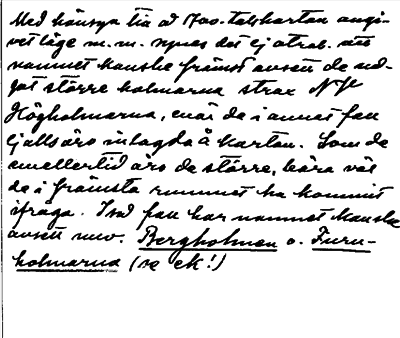 Med hänsyn till å 1700-talskartan angi-
vet läge m.m. synes det ej otrol. att
namnet kanske främst avsett de nå-
got större holmarna strax N
Högholmarna, enär de i annat fall
ej alls äro inlagda å kartan. Som de
emellertid äro de större, böra väl
de i främsta rummet ha kommit
ifråga. I så fall har namnet kanske
avsett nuv. Bergholmen o. Furu-
holmarna (se ek!)